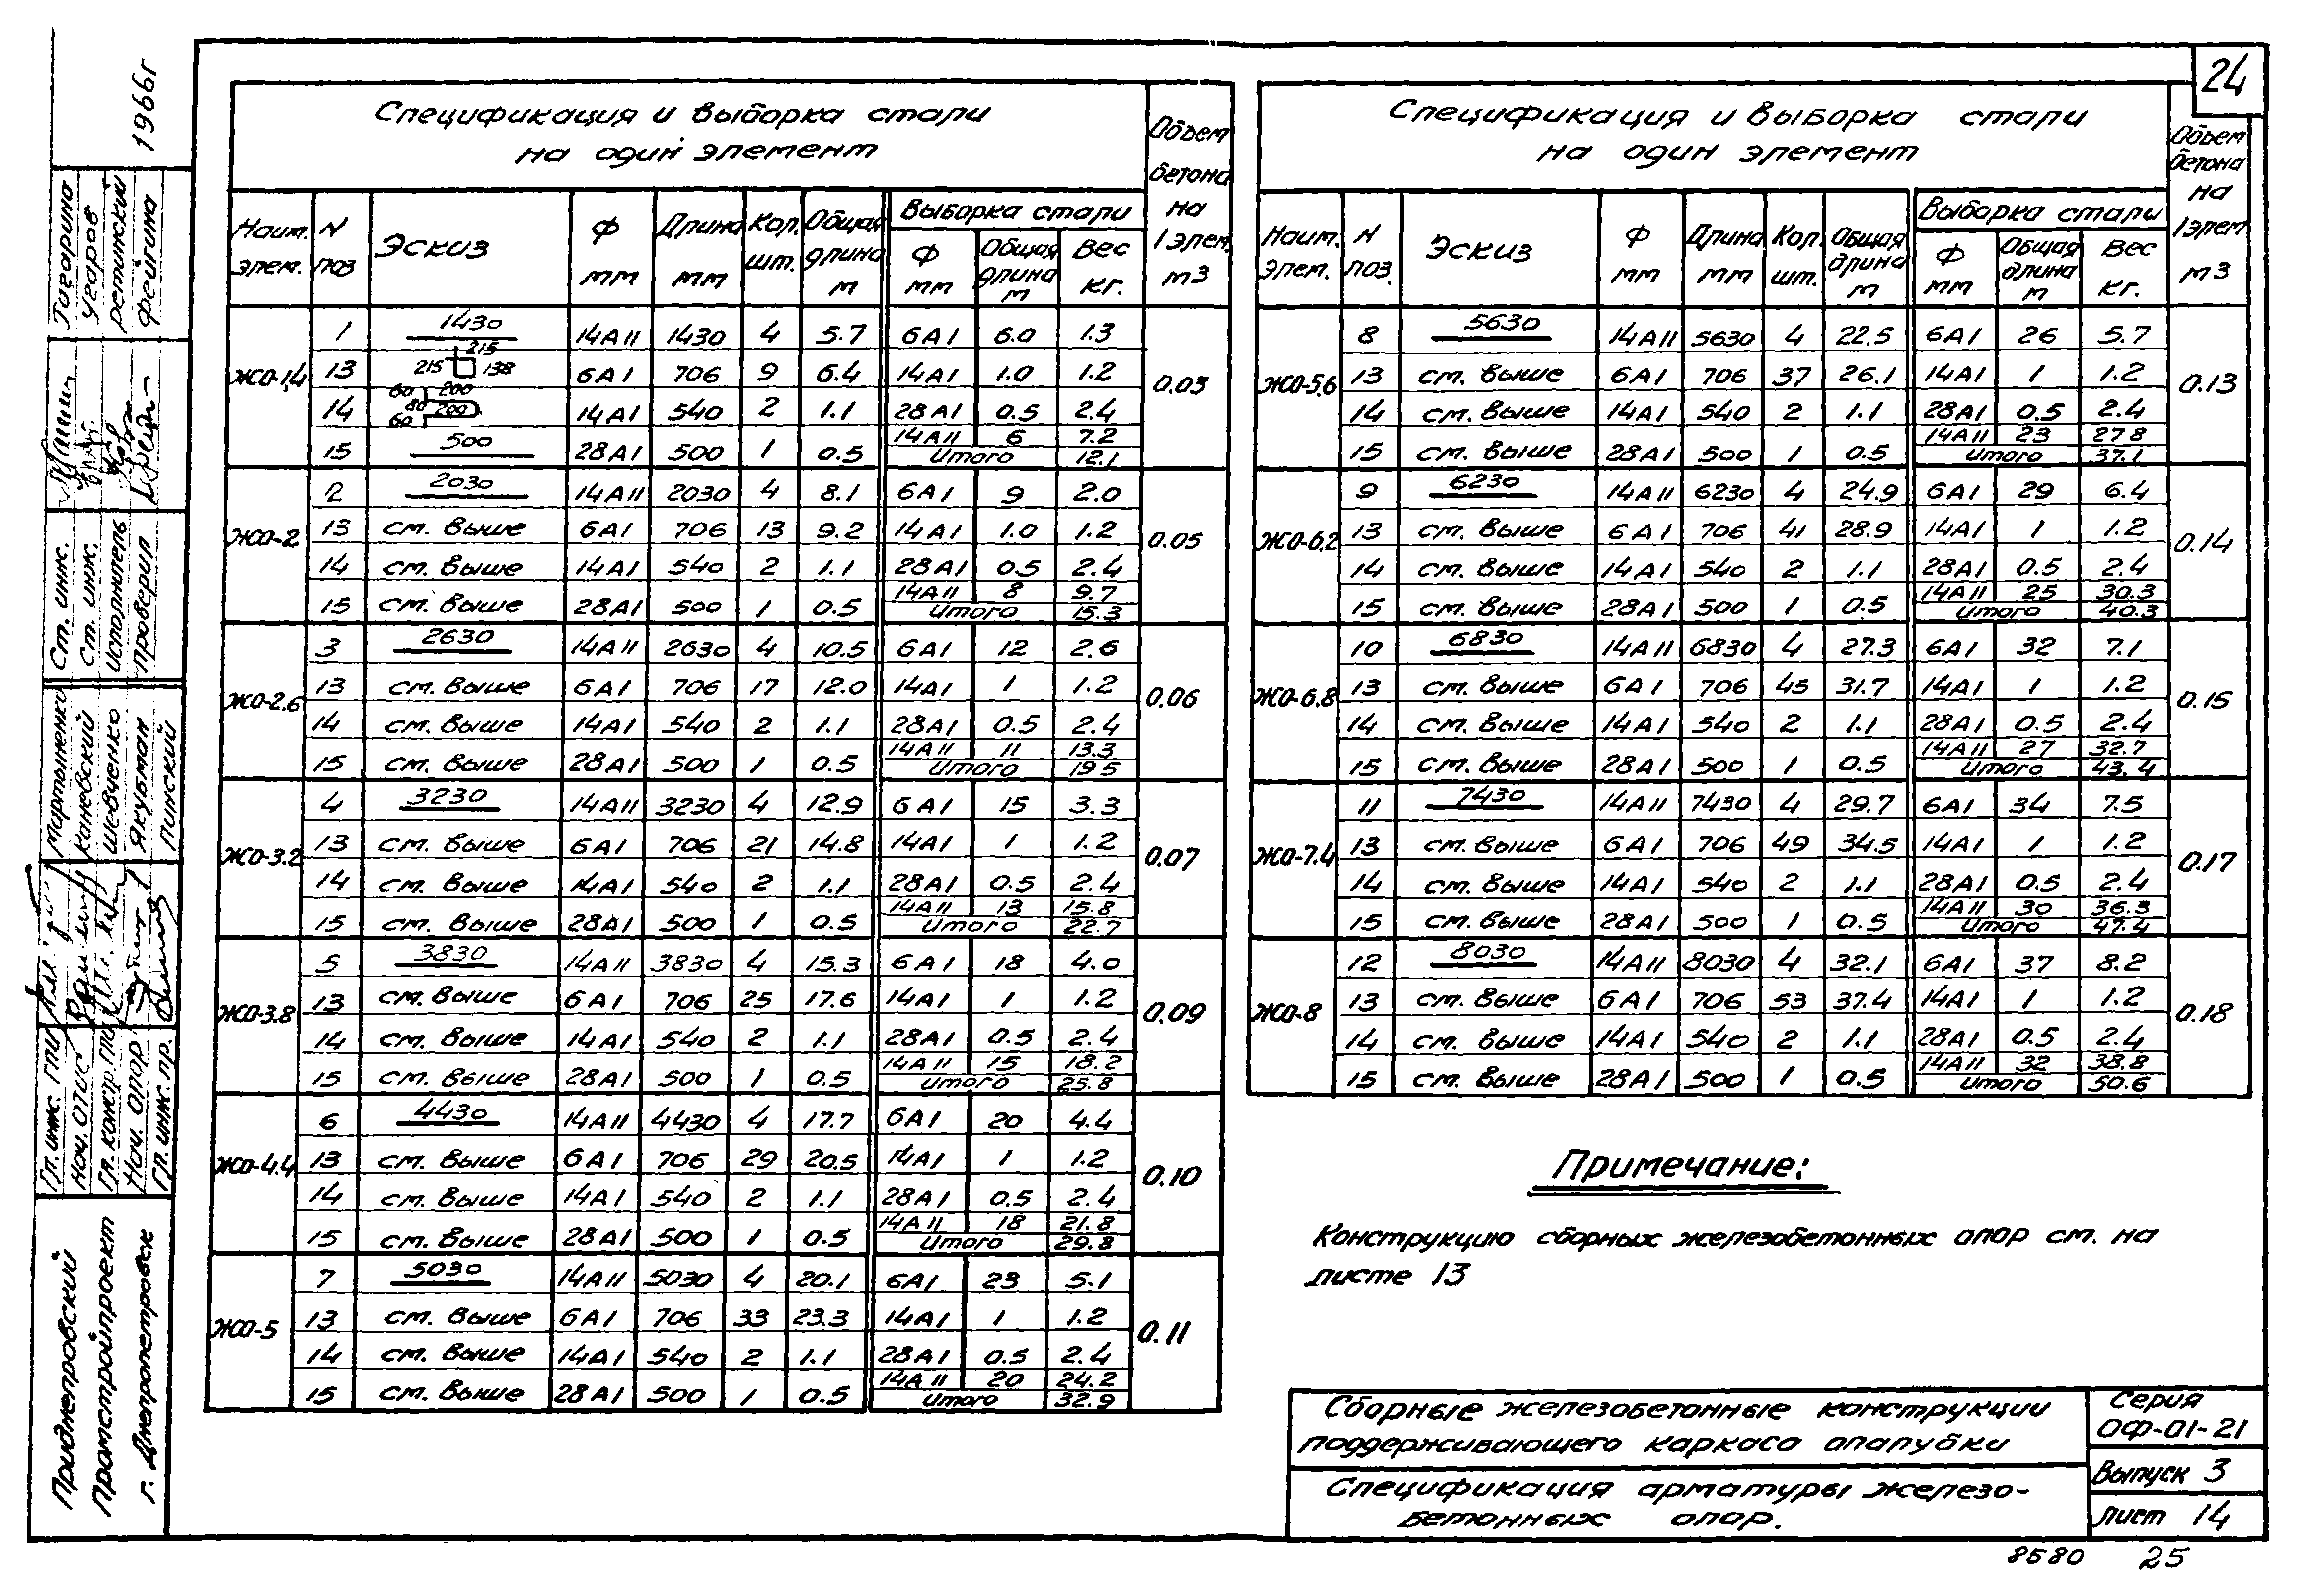 24
Спецификация и выборка стали
на один элемент
Объем бетона на 1 элем. м3
Наим. элем. N поз Эскиз Ф мм Длина мм Кол. шт. Общая длина м Выборка стали
Ф мм Общая длина м Вес кг.
ЖО-1,4 0.03
1 1430 14АII 1430 4 5.7 6АI 6.0 1.3
13 215 215 138 6АI 706 9 6.4 14АI 1.0 1.2
14 60 200 80 200 60 14АI 540 2 1.1 28АI 0.5 2.4
14АII 6 7.2
15 500 28АI 500 1 0.5 Итого 12.1
ЖО-2 0.05
2 2030 14АII 2030 4 8.1 6АI 9 2.0
13 см. выше 6АI 706 13 9.2 14АI 1.0 1.2
14 см. выше 14АI 540 2 1.1 28АI 0.5 2.4
14АII 8 9.7
15 см. выше 28АI 500 1 0.5 Итого 15.3
ЖО-2.6 0.06
3 2630 14АII 2630 4 10.5 6АI 12 2.6
13 см. выше 6АI 706 17 12.0 14АI 1 1.2
14 см. выше 14АI 540 2 1.1 28АI 0.5 2.4
14АII 11 13.3
15 см. выше 28АI 500 1 0.5 Итого 195
ЖО-3.2 0.07
4 3230 14АII 3230 4 12.9 6АI 15 3.3
13 см. выше 6АI 706 21 14.8 14АI 1 1.2
14 см. выше 14АI 540 2 1.1 28АI 0.5 2.4
14АII 13 15.8
15 см. выше 28АI 500 1 0.5 Итого 22.7
ЖО-3.8 0.09
5 3830 14АII 3830 4 15.3 6АI 18 4.0
13 см. выше 6АI 706 25 17.6 14АI 1 1.2
14 см. выше 14АI 540 2 1.1 28АI 0.5 2.4
14АII 15 18.2
15 см. выше 28АI 500 1 0.5 Итого 25.8
ЖО-4.4 0.10
6 4430 14АII 4430 4 17.7 6АI 20 4.4
13 см. выше 6АI 706 29 20.5 14АI 1 1.2
14 см. выше 14АI 540 2 1.1 28АI 0.5 2.4
14АII 18 21.8
15 см. выше 28АI 500 1 0.5 Итого 29.8
ЖО-5 0.11
7 5030 14АII 5030 4 20.1 6АI 23 5.1
13 см. выше 6АI 706 33 23.3 14АI 1 1.2
14 см. выше 14АI 540 2 1.1 28АI 0.5 2.4
14АII 20 24.2
15 см. выше 28АI 500 1 0.5 Итого 32.9
Спецификация и выборка стали
на один элемент
Объем бетона на 1 элем м3
Наим. элем. N поз. Эскиз Ф мм Длина мм Кол. шт. Общая длина м Выборка стали
Ф мм Общая длина м Вес кг.
ЖО-5.6 0.13
8 5630 14АII 5630 4 22.5 6АI 26 5.7
13 см. выше 6АI 706 37 26.1 14АI 1 1.2
14 см. выше 14АI 540 2 1.1 28АI 0.5 2.4
14АII 23 278
15 см. выше 28АI 500 1 0.5 Итого 37.1
ЖО-6.2 0.14
9 6230 14АII 6230 4 24.9 6АI 29 6.4
13 см. выше 6АI 706 41 28.9 14АI 1 1.2
14 см. выше 14АI 540 2 1.1 28АI 0.5 2.4
14АII 25 30.3
15 см. выше 28АI 500 1 0.5 Итого 40.3
ЖО-6.8 0.15
10 6830 14АII 6830 4 27.3 6АI 32 7.1
13 см. выше 6АI 706 45 31.7 14АI 1 1.2
14 см. выше 14АI 540 2 1.1 28АI 0.5 2.4
14АII 27 32.7
15 см. выше 28АI 500 1 0.5 Итого 43.4
ЖО-7.4 0.17
11 7430 14АII 7430 4 29.7 6АI 34 7.5
13 см. выше 6АI 706 49 34.5 14АI 1 1.2
14 см. выше 14АI 540 2 1.1 28АI 0.5 2.4
14АII 30 36.3
15 см. выше 28АI 500 1 0.5 Итого 47.4
ЖО-8 0.18
12 8030 14АII 8030 4 32.1 6АI 37 8.2
13 см. выше 6АI 706 53 37.4 14АI 1 1.2
14 см. выше 14АI 540 2 1.1 28АI 0.5 2.4
14АII 32 38.8
15 см. выше 28АI 500 1 0.5 Итого 50.6
Примечание:
Конструкцию сборных железобетонных опор см. на
листе 13
Сборные железобетонные конструкции
поддерживающего каркаса опалубки
Спецификация арматуры железо-
бетонных опор.
Серия
ОФ-01-21
Выпуск 3
Лист 14
8580 25
Приднепровский
Промстройпроект
г. Днепропетровск
Гл. инж. ГПИ Мартыненко
Нач. ОТИС Каневский
Гл. констр. ГПИ Шевченко
Нач. ОПОР Якубман
Гл. инж. пр. Пинский
Ст. инж. Тигорина
Ст. инж. Угаров
Исполнитель
Проверил Фейгина
1966г